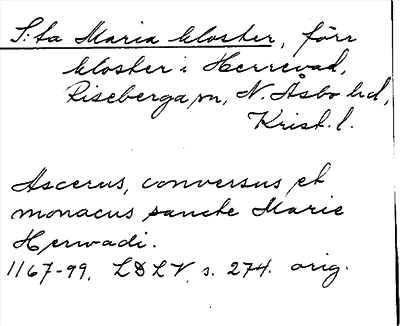 S:ta Maria kloster, förr
kloster i Herrevad,
Riseberga sn, N. Åsbo hd,
Krist. l.
Ascerus, conversus et
monacus sancte Marie
Herwadi.
1167-99. LDLV, s. 274. orig.